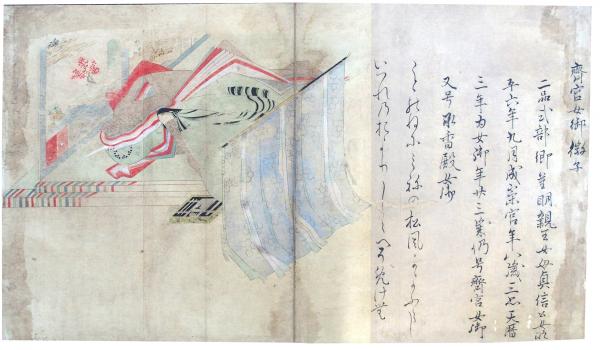 齊宮女御 徽子
二品式部卿重明親王女母貞信公女
平六年九月成齋宮年八歳云々天暦
三年為女御年廿三歟仍号齊宮女御
又号承香殿女御
ことのねにみねの松風かよふらし
いつれのをよりしらへそめけむ